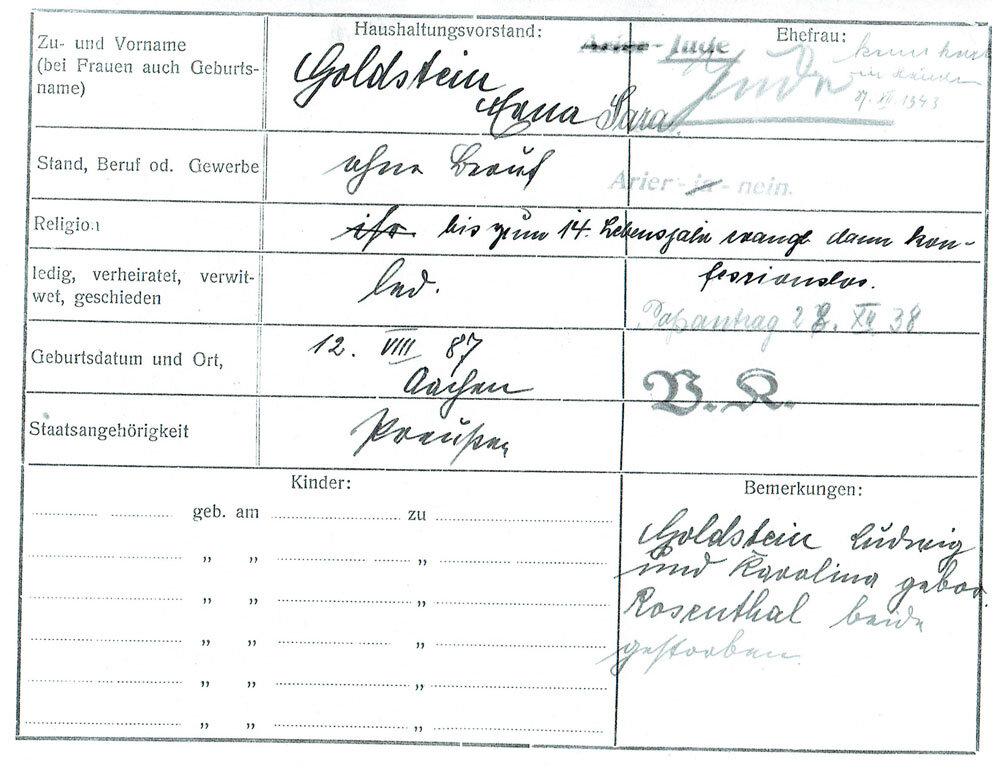 Zu- und Vorname
(bei Frauen auch Geburts-
name)
Haushaltungsvorstand:
Goldstein
Erna Sara
Arier - Jude
Jude
Ehefrau:
1943
Stand, Beruf od. Gewerbe
ohne Beruf
Arier - ja - nein.
Religion
isr. bis zum 14. Lebensjahr evangl. dann kon-
fessionslos.
ledig, verheiratet, verwit-
wet, geschieden
led.
Passantrag 28. XII 38
Geburtsdatum und Ort,
12. VIII 87
Aachen
V. K.
Staatsangehörigkeit
Preußen
Kinder:
geb. am zu
„ „ „
„ „ „
„ „ „
„ „ „
„ „ „
Bemerkungen:
Goldstein Ludwig
und Karolina gebor.
Rosenthal beide
gestorben